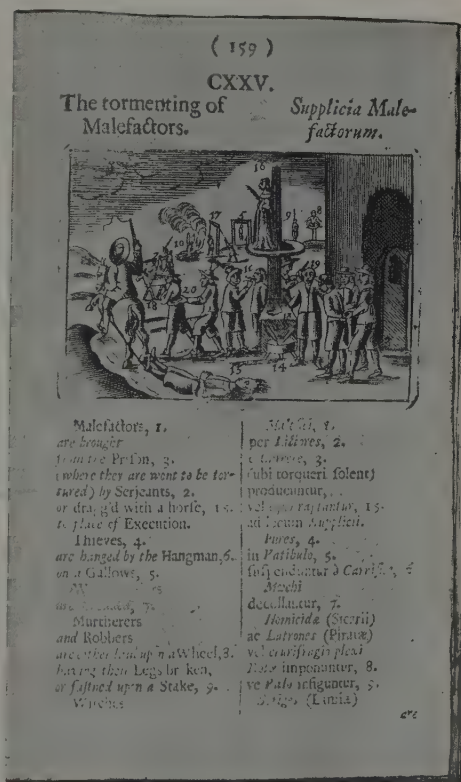 ( 159 )
CXXV.
The tormenting of
Malefactors.
Supplicia Male-
factorum.
Malefactors, 1.
are brought
from the Prison, 3.
(where they are wont to be tor-
tured) by Serjeants, 2.
or dragg'd with a horse, 15.
to place of Execution.
Thieves, 4.
are hanged by the Hangman, 6.
on a Gallows, 5.
7.
Murtherers
and Robbers
are either laid upon a Wheel, 8.
having their Legs broken,
or fastned upon a Stake, 9.
Witches
1.
per Lictores, 2.
Carcere, 3.
(ubi torqueri solent)
producuntur,
vel raptantur, 15.
ad locum Supplicii.
Fures, 4.
in Patibulo, 5.
suspenduntur à
Mœchi
decollantur, 7.
Homicidæ (Sicarii)
ac Latrones (Piratæ)
vel crurifragio plexi
imponuntur, 8.
vel Palo infiguntur, 9.
Striges (Lamiæ)